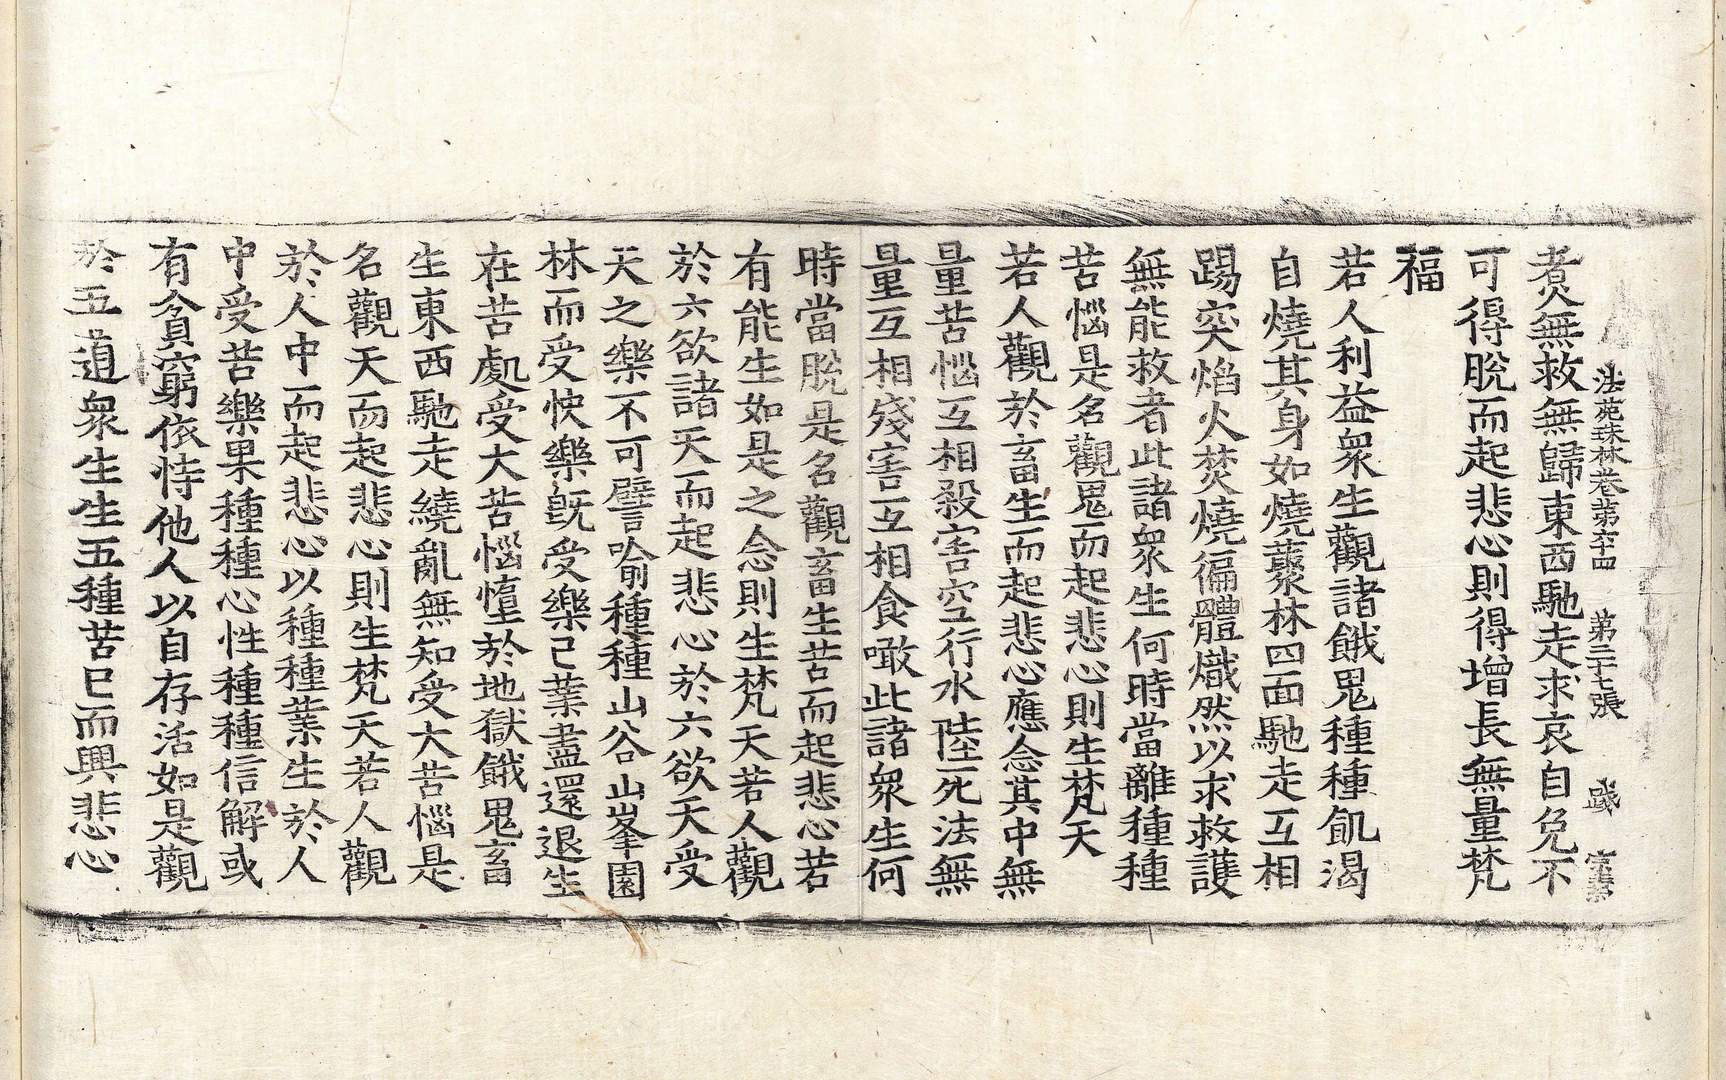 法苑珠林卷第六十四　第二十七張　踐
煮無救無歸東西馳走求哀自免不
可得脫而起悲心則得增長無量梵
福
若人利益衆生觀諸餓鬼種種飢渴
自燒其身如燒藂林四面馳走互相
踢突焰火焚燒徧體熾然以求救護
無能救者此諸衆生何時當離種種
苦惱是名觀鬼而起悲心則生梵天
若人觀於畜生而起悲心應念其中無
量苦惱互相殺害空行水陸死法無
量互相殘害互相食噉此諸衆生何
時當脫是名觀畜生苦而起悲心若
有能生如是之念則生梵天若人觀
於六欲諸天而起悲心於六欲天受
天之樂不可譬喻種種山谷山峯園
林而受快樂旣受樂已業盡還退生
在苦處受大苦惱墮於地獄餓鬼畜
生東西馳走繞亂無知受大苦惱是
名觀天而起悲心則生梵天若人觀
於人中而起悲心以種種業生於人
中受苦樂果種種心性種種信解或
有貧窮依恃他人以自存活如是觀
於五道衆生生五種苦已而興悲心